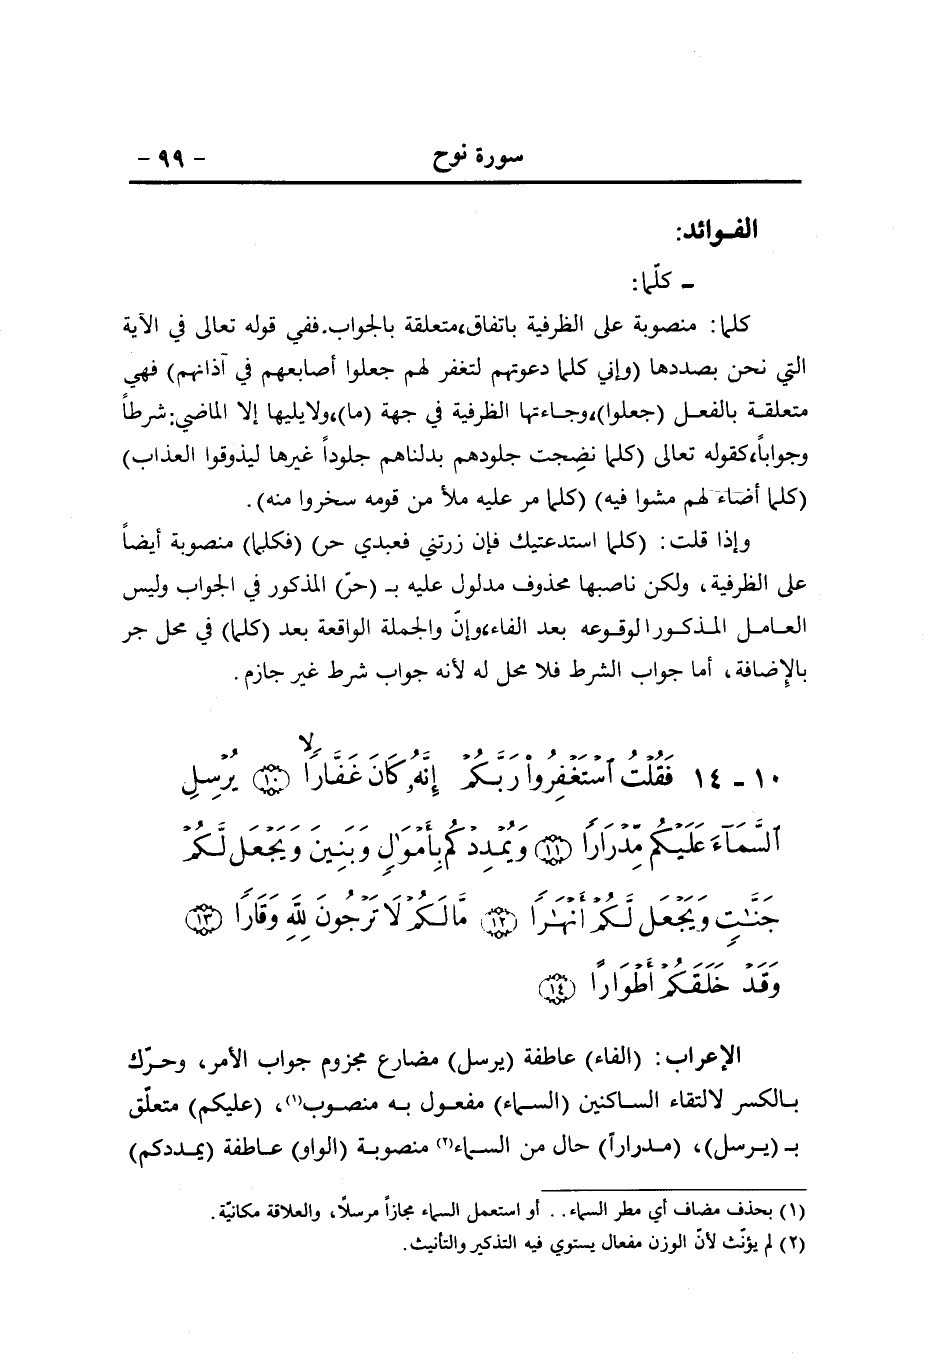 سورة نوح - ٩٩ -
الفـوائد:
ـ كلّما:
كلما: منصوبة على الظرفية باتفاق،متعلقة بالجواب.ففي قوله تعالى في الآية
التي نحن بصددها (وإني كلما دعوتهم لتغفر لهم جعلوا أصابعهم في آذانهم) فهي
متعلقـة بالفعـل (جعلوا)،وجـاءتها الظرفية في جهة (ما)،ولايليها إلا الماضي:شرطاً
وجواباً،كقوله تعالى (كلما نضِجت جلودهم بدلناهم جلوداً غيرها ليذوقوا العذاب)
(كلما أضاء لهم مشوا فيه) (كلما مر عليه ملأ من قومه سخروا منه).
وإذا قلت: (كلما استدعتيك فإن زرتني فعبدي حر) (فكلما) منصوبة أيضاً
على الظرفية، ولكن ناصبها محذوف مدلول عليه بـ (حرّ) المذكور في الجواب وليس
العـامـل المـذكـورا لوقـوعه بعـد الفاء،وإنّ والجملة الواقعة بعد (كلما) في محل جر
بالإِضافة، أما جواب الشرط فلا محل له لأنه جواب شرط غير جازم.
١٠ - ١٤ فَقُلْتُ ٱسْتَغْفِرُوا۟ رَبَّكُمْ إِنَّهُۥ كَانَ غَفَّارًا ۙ ١٠ يُرْسِلِ
ٱلسَّمَآءَ عَلَيْكُم مِّدْرَارًا ١١ وَيُمْدِدْكُم بِأَمْوَٰلٍ وَبَنِينَ وَيَجْعَل لَّكُمْ
جَنَّٰتٍ وَيَجْعَل لَّكُمْ أَنْهَٰرًا ١٢ مَّا لَكُمْ لَا تَرْجُونَ لِلَّهِ وَقَارًا ١٣
وَقَدْ خَلَقَكُمْ أَطْوَارًا ١٤
الإعراب: (الفاء) عاطفة (يرسل) مضارع مجزوم جواب الأمر، وحـرّك
بـالكسر لالتقاء السـاكنين (السـماء) مفعـول بـه منصـوب(١)، (عليكم) متعلّق
بـ (يـرسل)، (مـدراراً) حال من السـماء(٢) منصوبة (الواو) عـاطفة (يمـددكم)
(١) بحذف مضاف أي مطر السماء.. أو استعمل السماء مجازاً مرسلًا، والعلاقة مكانيّة.
(٢) لم يؤنّث لأنّ الوزن مفعال يستوي فيه التذكير والتأنيث.